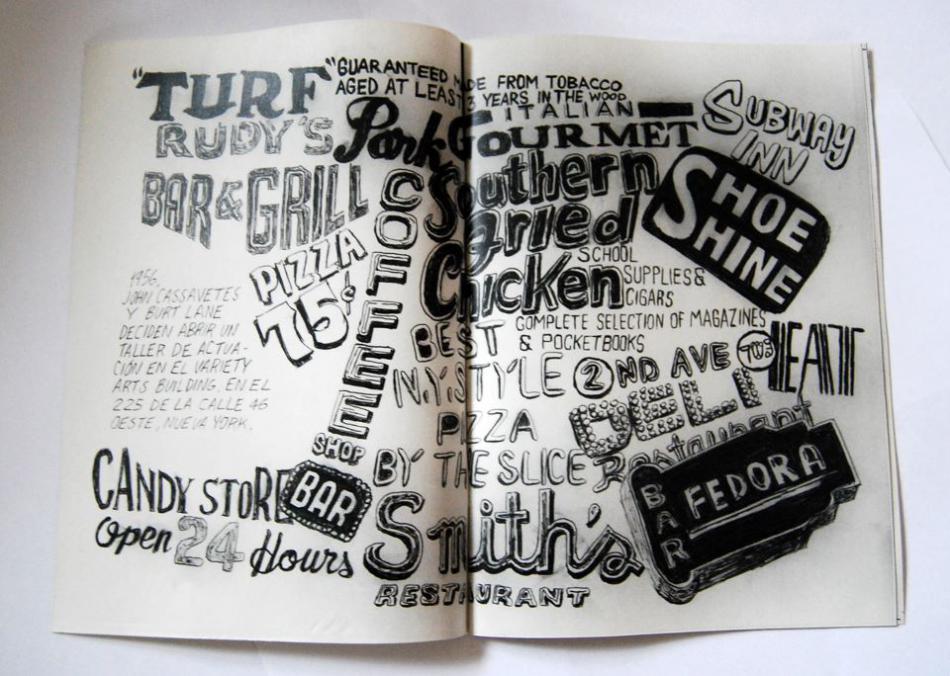 "TURF"
RUDY'S
BAR & GRILL
PIZZA
75¢
1956,
JOHN CASSAVETES
Y BURT LANE
DECIDEN ABRIR UN
TALLER DE ACTUA-
CIÓN EN EL VARIETY
ARTS BUILDING, EN EL
225 DE LA CALLE 46
OESTE, NUEVA YORK.
CANDY STORE
Open 24 Hours
BAR
GUARANTEED MADE FROM TOBACCO
AGED AT LEAST 3 YEARS IN THE WOOD
Park
ITALIAN
GOURMET
COFFEE
SHOP
Southern
Fried
Chicken
SCHOOL
SUPPLIES &
CIGARS
COMPLETE SELECTION OF MAGAZINES
& POCKETBOOKS
BEST
N.Y. STYLE
PIZZA
BY THE SLICE
2ND AVE
DELI
Restaurant
Smith's
RESTAURANT
SUBWAY
INN
SHOE
SHINE
BAR
FEDORA